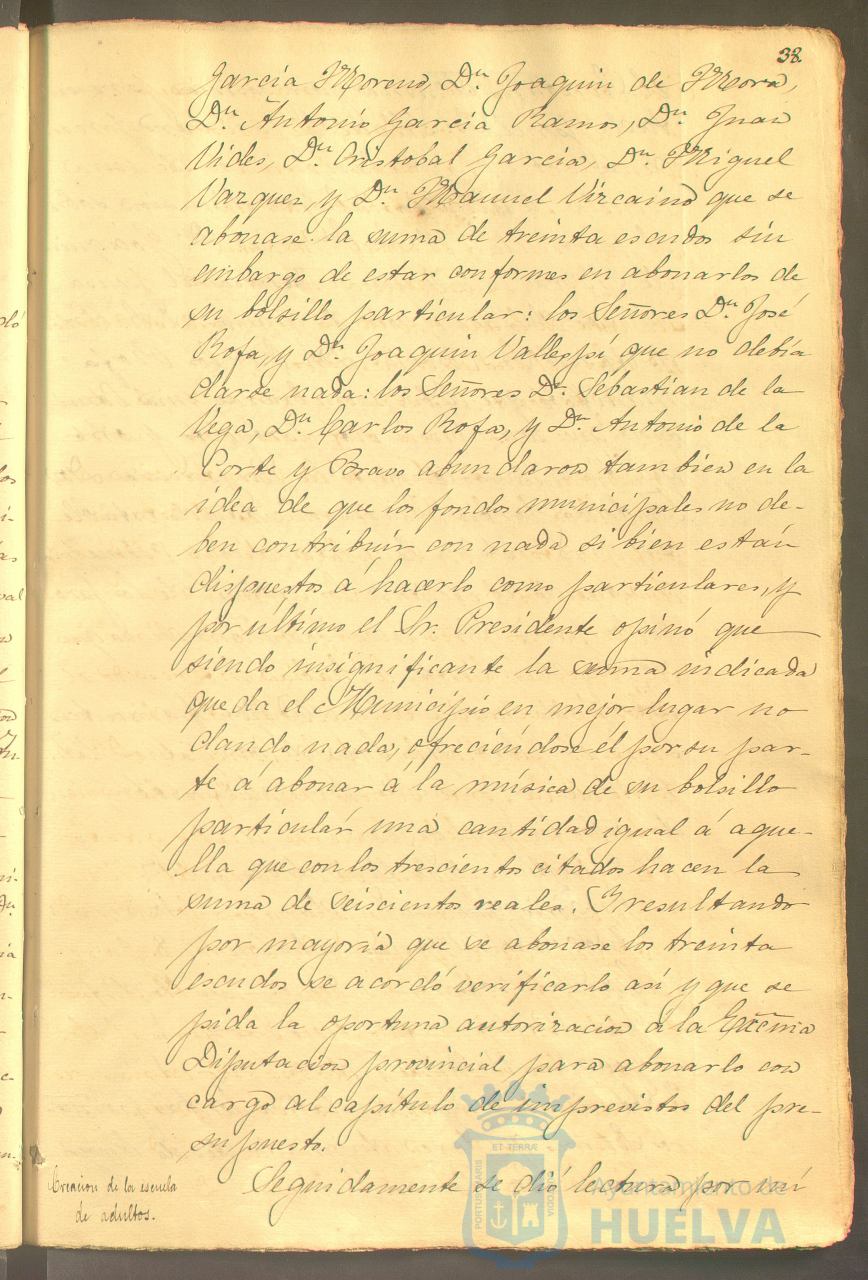 38.
García Moreno, Dⁿ. Joaquin de Mora,
Dⁿ. Antonio García Ramos, Dⁿ. Juan
Vides, Dⁿ. Cristobal García, Dⁿ. Miguel
Vazquez, y Dⁿ. Manuel Vizcaino que se
abonase la suma de treinta escudos sin
embargo de estar conformes en abonarlos de
su bolsillo particular: los Señores Dⁿ. José
Rofa, y Dⁿ. Joaquin Vallespí que no debía
darse nada: los Señores Dⁿ. Sebastian de la
Vega, Dⁿ. Carlos Rofa, y Dⁿ. Antonio de la
Corte y Bravo abundaron tambien en la
idea de que los fondos municipales no de-
ben contribuir con nada si bien están
dispuestos á hacerlo como particulares, y
por último el Sr. Presidente opinó que
siendo insignificante la suma indicada
queda el Municipio en mejor lugar no
dando nada, ofreciéndose él por su par-
te á abonar á la música de su bolsillo
particular una cantidad igual á aque-
lla que con los trescientos citados hacen la
suma de seiscientos reales. Y resultando
por mayoría que se abonase los treinta
escudos se acordó verificarlo así y que se
pida la oportuna autorizacion a la Excma
Diputacion provincial para abonarlo con
cargo al capítulo de imprevistos del pre-
supuesto.
Creacion de la escuela
de adultos.
Seguidamente se dió lectura por mí
Ayuntamiento de
HUELVA